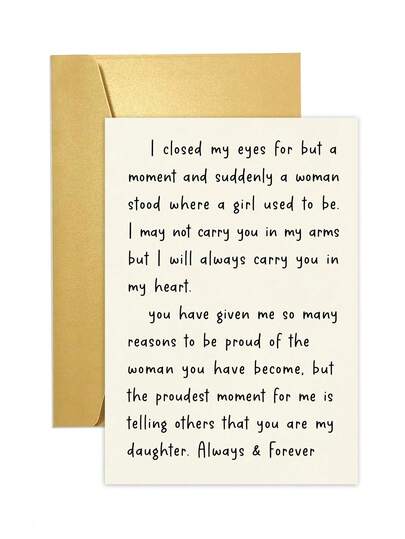 I closed my eyes for but a
moment and suddenly a woman
stood where a girl used to be.
I may not carry you in my arms
but I will always carry you in
my heart.
you have given me so many
reasons to be proud of the
woman you have become, but
the proudest moment for me is
telling others that you are my
daughter. Always & Forever